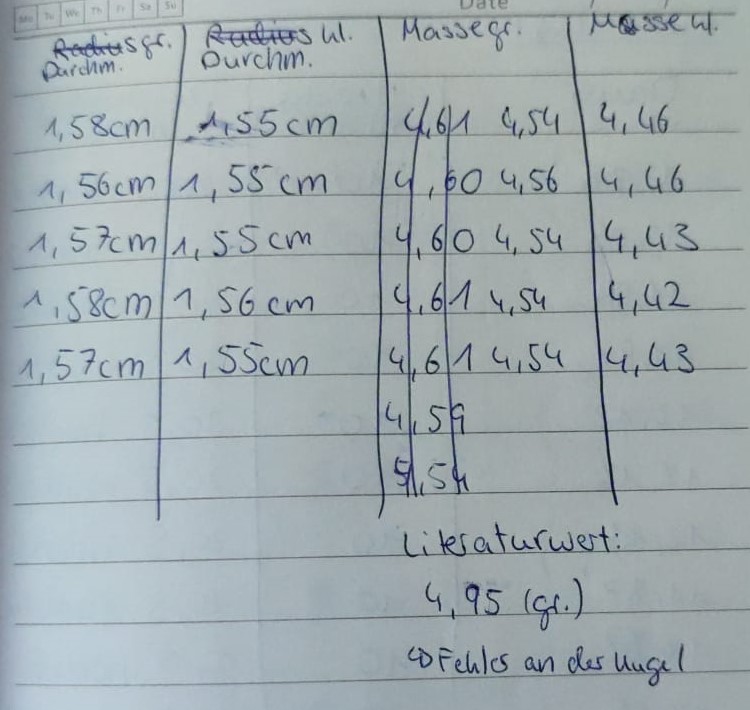 Mo Tu We Th Fr Sa Su Date
Radius gr. Radius kl. Masse gr. Masse kl.
Durchm. Durchm.
1,58cm 1,55 cm 4,61 4,54 4,46
1,56cm 1,55 cm 4,60 4,56 4,46
1,57cm 1,55 cm 4,60 4,54 4,43
1,58cm 1,56 cm 4,61 4,54 4,42
1,57cm 1,55cm 4,61 4,54 4,43
4,59
4,54
Literaturwert:
4,95 (gr.)
Fehler an der Kugel